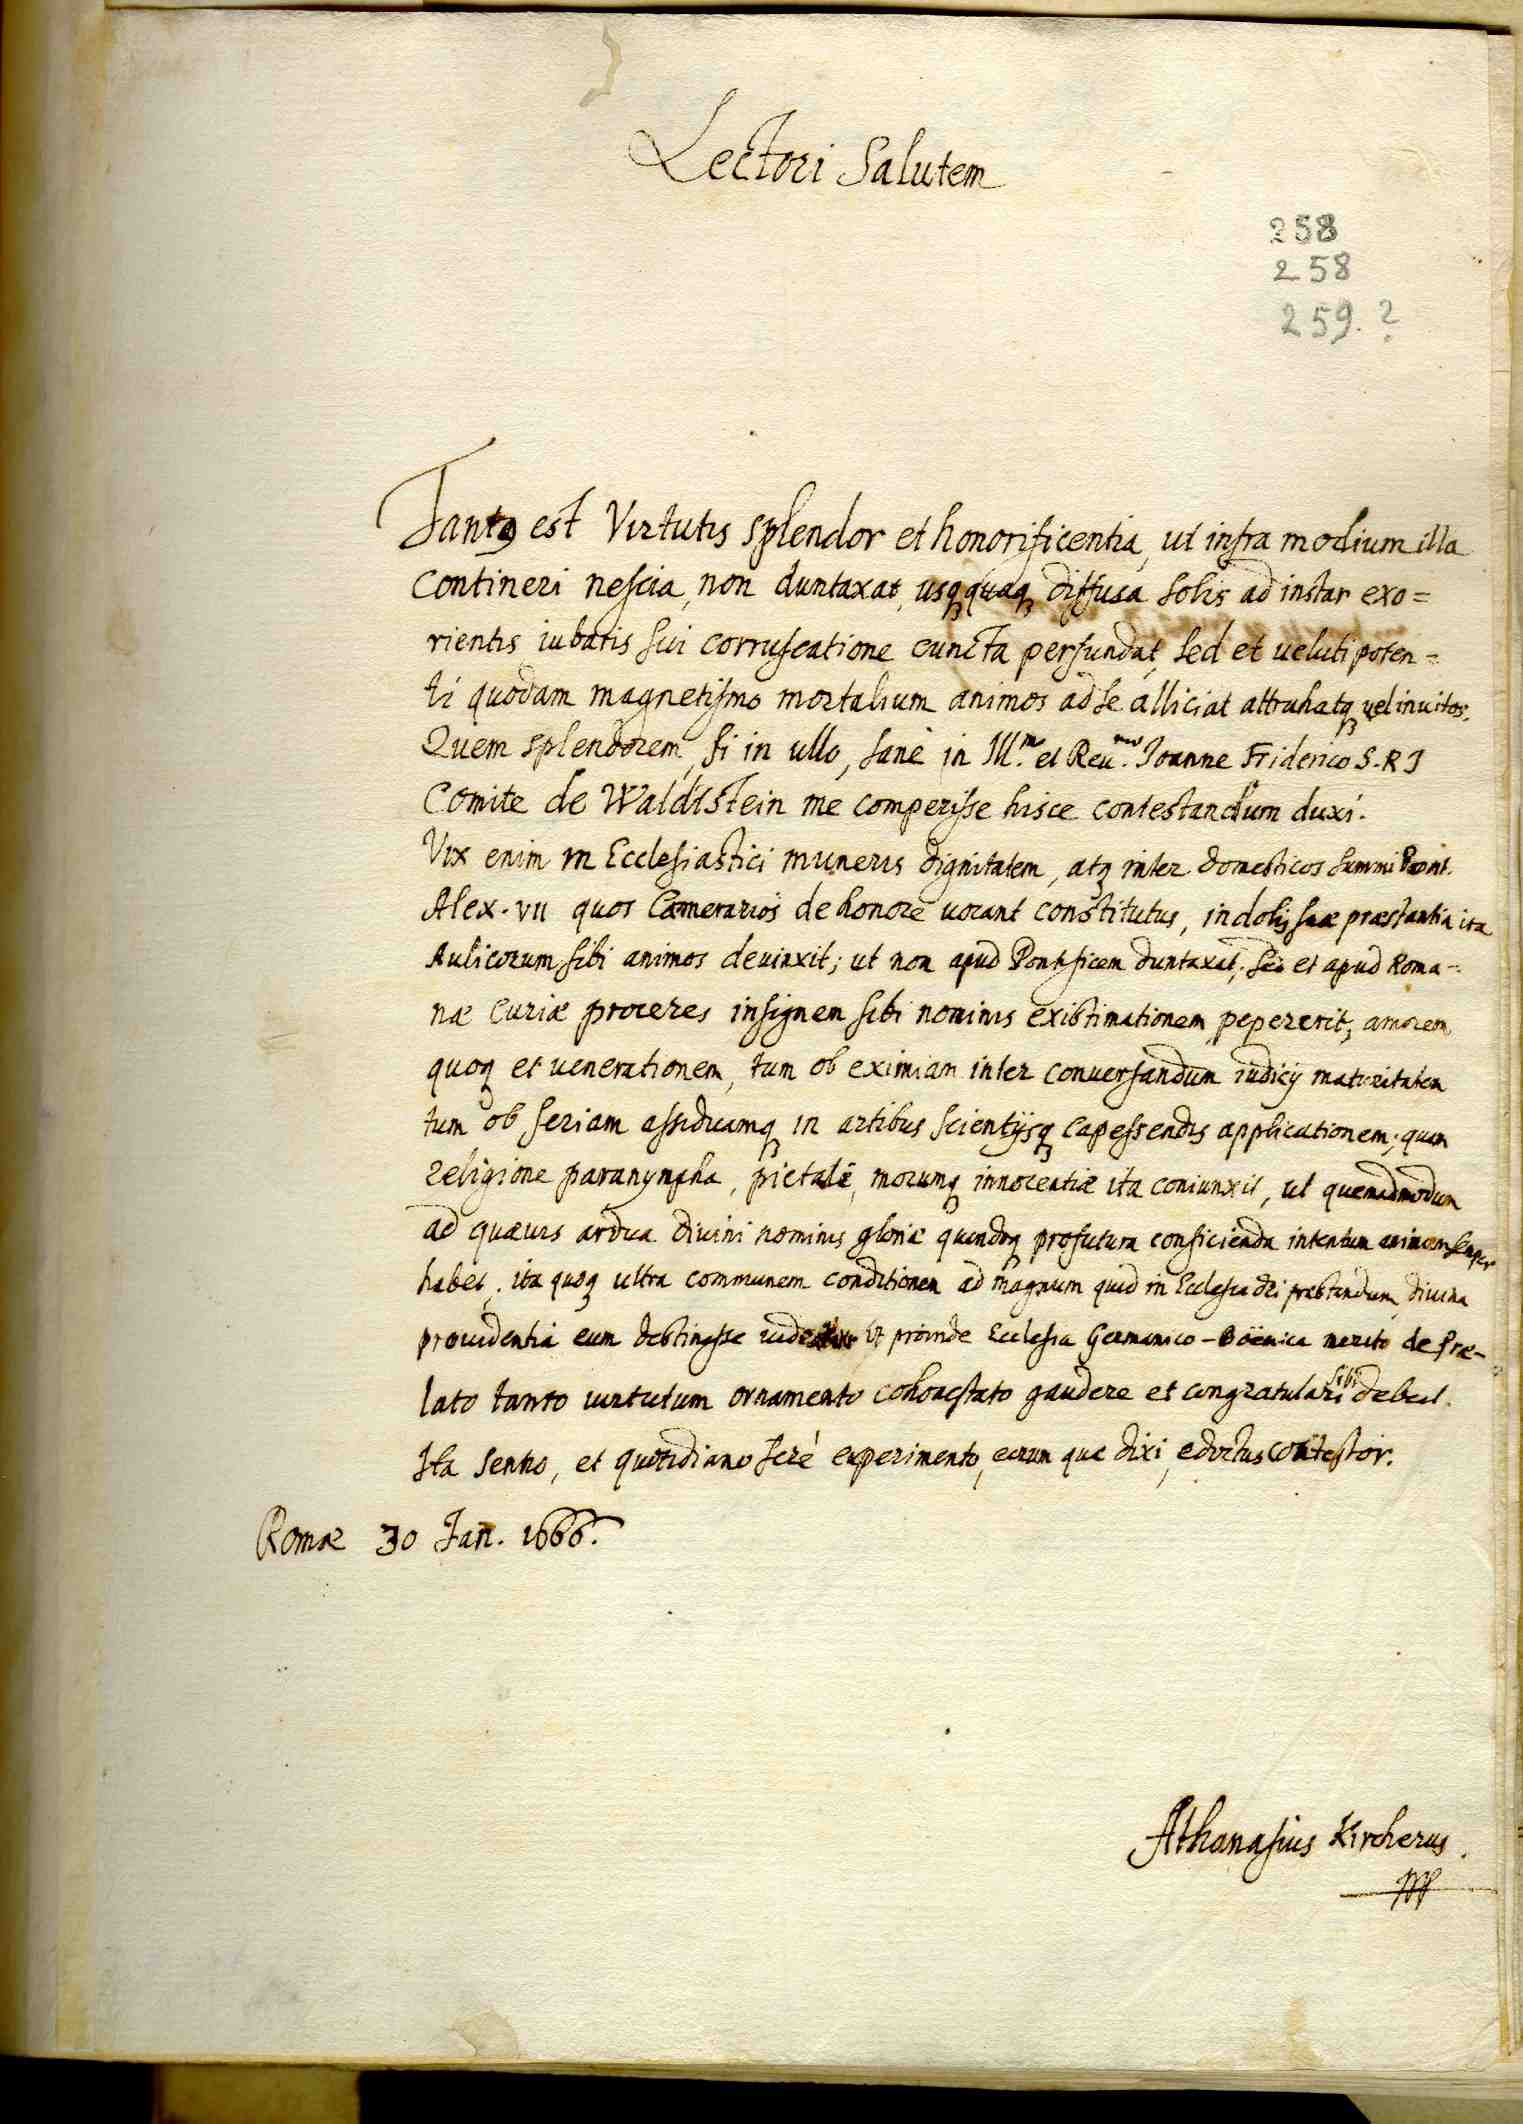 Lectori Salutem
258
258
259.?
Tantꝰ est Virtutis splendor et honorificentia, ut infra modium illa
contineri nescia, non duntaxat, usqꝫquaqꝫ diffusa solis ad instar exo=
rientis iubaris sui corruscatione cuncta perfundat, sed et veluti poten=
ti quodam magnetismo mortalium animos ad se alliciat attrahatqꝫ vel invitos.
Quem splendorem, si in ullo, sanè in Ill.mo et Reu.mo Joanne Friderico S.R J
Comite de Waldtstein me comperisse hisce contestandum duxi.
Vix enim in Ecclesiastici muneris dignitatem, atqꝫ inter domesticos summi Pont.
Alex. VII quos Camerarios de honore vocant constitutus, indolis suæ præstantia ita
Aulicorum sibi animos devinxit; ut non apud Pontificem duntaxat; sed et apud Roma-
næ Curiæ proceres insignem sibi nominis existimationem pepererit; amorem
quoqꝫ et venerationem, tum ob eximiam inter conversandum iudicij maturitatem
tum ob seriam assiduamqꝫ in artibus scientijsqꝫ capessendis applicationem; quam
religione paranympha, pietate, morumqꝫ innocentiæ ita coniunxit, ut quemadmodum
ad quævis ardua divini nominis gloriæ quandoqꝫ profutura conficienda intentum animum semper
habet, ita quoqꝫ ultra communem conditionem ad magnum quid in Ecclesia dei præstandum, divina
providentia eum destinasse Ut proinde Ecclesia Germanico-Boëmica merito de Præ-
lato tanto virtutum ornamento cohonestato gaudere et congratulari sibi debeat.
Ita sentio, et quotidiano ferè experimento, eorum quæ dixi, edoctus contestor.
Romæ 30 Jan. 1666.
Athanasius Kircherus.